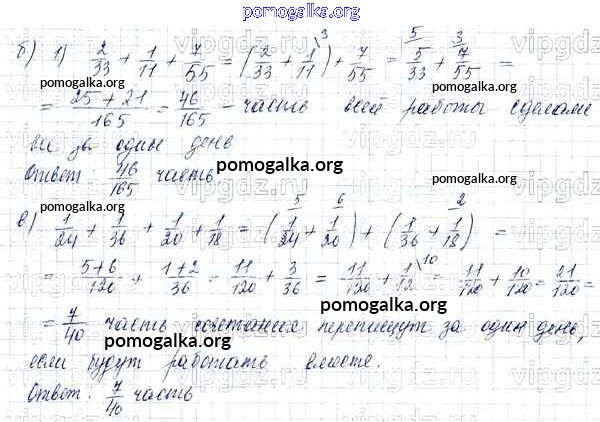 pomogalka.org
б) 1) 2/33 + 1/11 + 7/55 = (2/33 + 1/11 \3) + 7/55 = 5/ 5/33 + 3/ 7/55 =
pomogalka.org pomogalka.org
= 25+21/165 = 46/165 - часть всей работы сделали
все за один день
pomogalka.org
Ответ: 46/165 часть
pomogalka.org pomogalka.org
в) 1/24 + 1/36 + 1/20 + 1/18 = (5/ 1/24 + 6/ 1/20) + (1/36 + 2/ 1/18) =
= 5+6/120 + 1+2/36 = 11/120 + 3/36 = 11/120 + 1/12 \10 = 11/120 + 10/120 = 21/120 =
pomogalka.org
= 7/40 часть перепишут за один день,
pomogalka.org
если будут работать вместе.
pomogalka.org
Ответ. 7/40 часть
vipgdz.ru